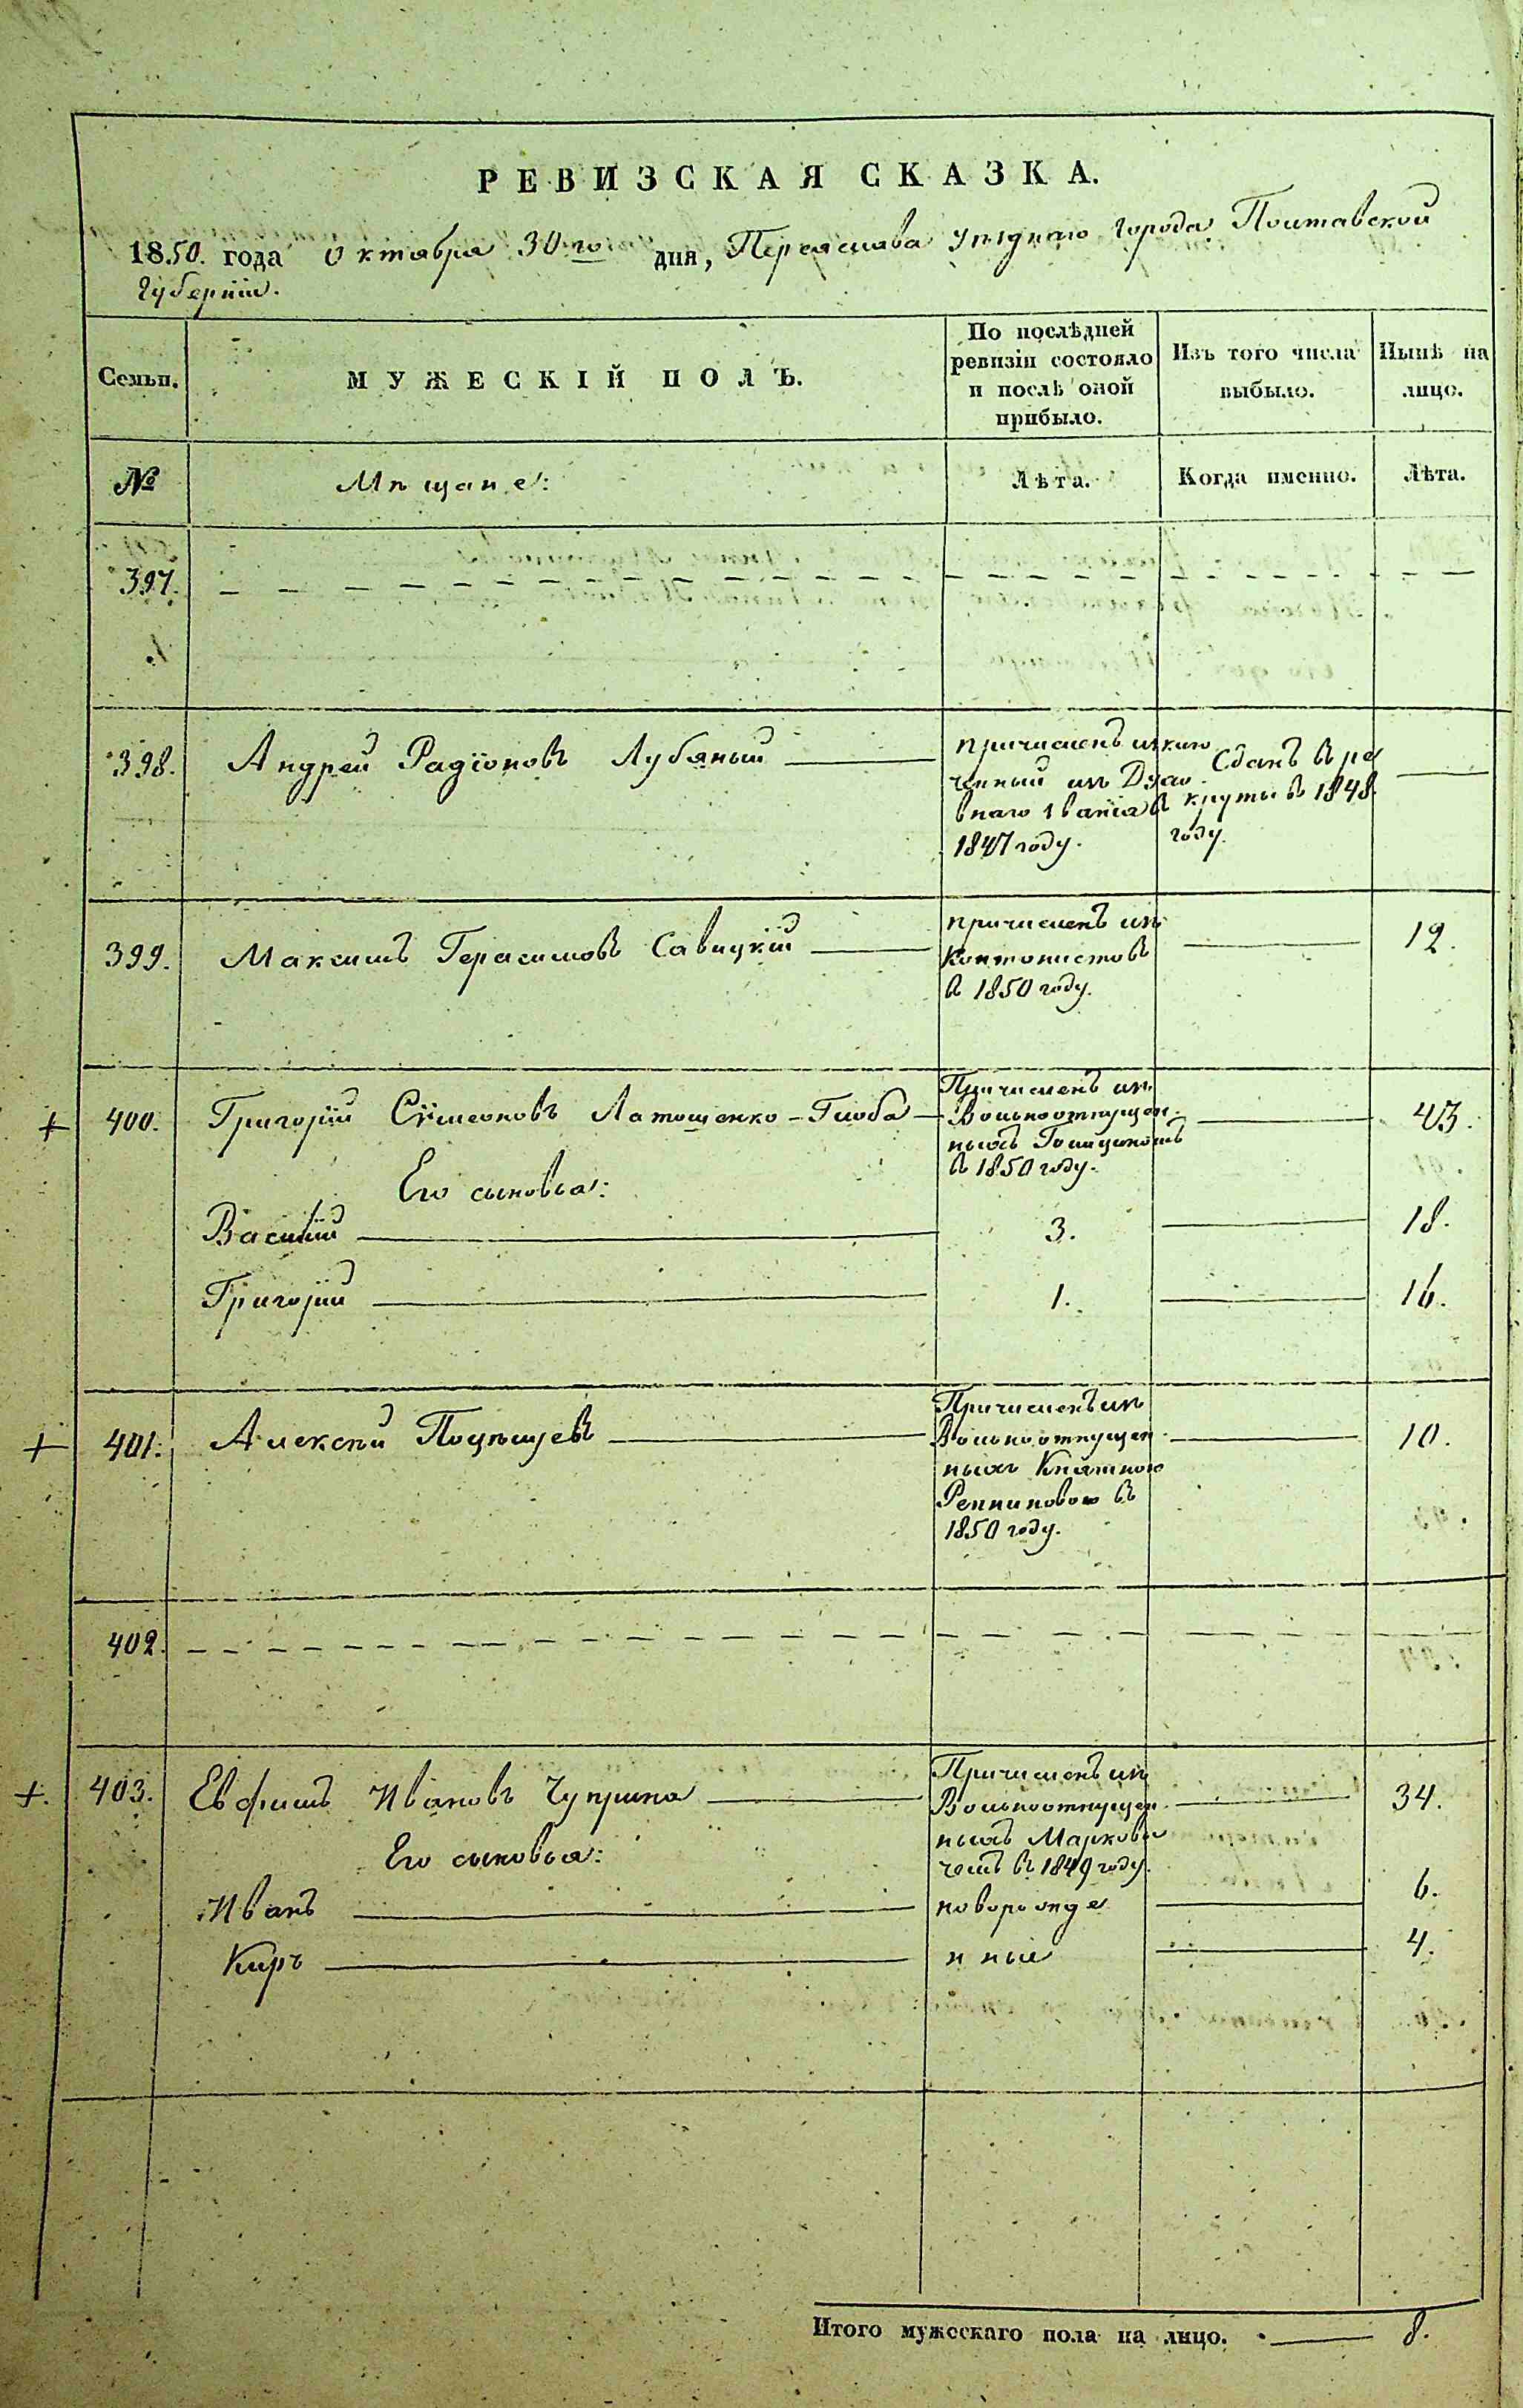 РЕВИЗСКАЯ СКАЗКА.
1850. года Октября 30го дня, Переяслава уѣзднаго города Полтавской
Губерніи.
Семьи.
МУЖЕСКІЙ ПОЛЪ.
По послѣдней
ревизіи состояло
и послѣ оной
прибыло.
Изъ того числа
выбыло.
Нынѣ на
лицо.
№
Мѣщане:
Лѣта.
Когда именно.
Лѣта.
397.
398. Андрей Радіоновъ Лубяный
причисленъ исклю
ченный изъ Духо
внаго званія въ
1847 году.
Сданъ въ ре
круты въ 1848
году.
399. Максимъ Герасимовъ Савицкій
причисленъ изъ
Контонистовъ
въ 1850 году.
12.
+ 400. Григорій Сѵмеоновъ Латошенко-Глоба
Причисленъ изъ
Вольноотпущен
ныхъ
въ 1850 году.
43.
Его сыновья:
Василій 3. 18.
Григорій 1. 16.
+ 401. Алексѣй Поцѣлуевъ
Причисленъ изъ
Вольноотпущен
ныхъ Княжною
Репниновою въ
1850 году.
10.
402.
+. 403. Евфимъ Ивановъ Чуприна
Причисленъ изъ
Вольноотпущен
ныхъ Маркови
чемъ въ 1849 году.
34.
Его сыновья:
Иванъ новорожде 6.
Киръ нные 4.
Итого мужескаго пола на лицо. 8.